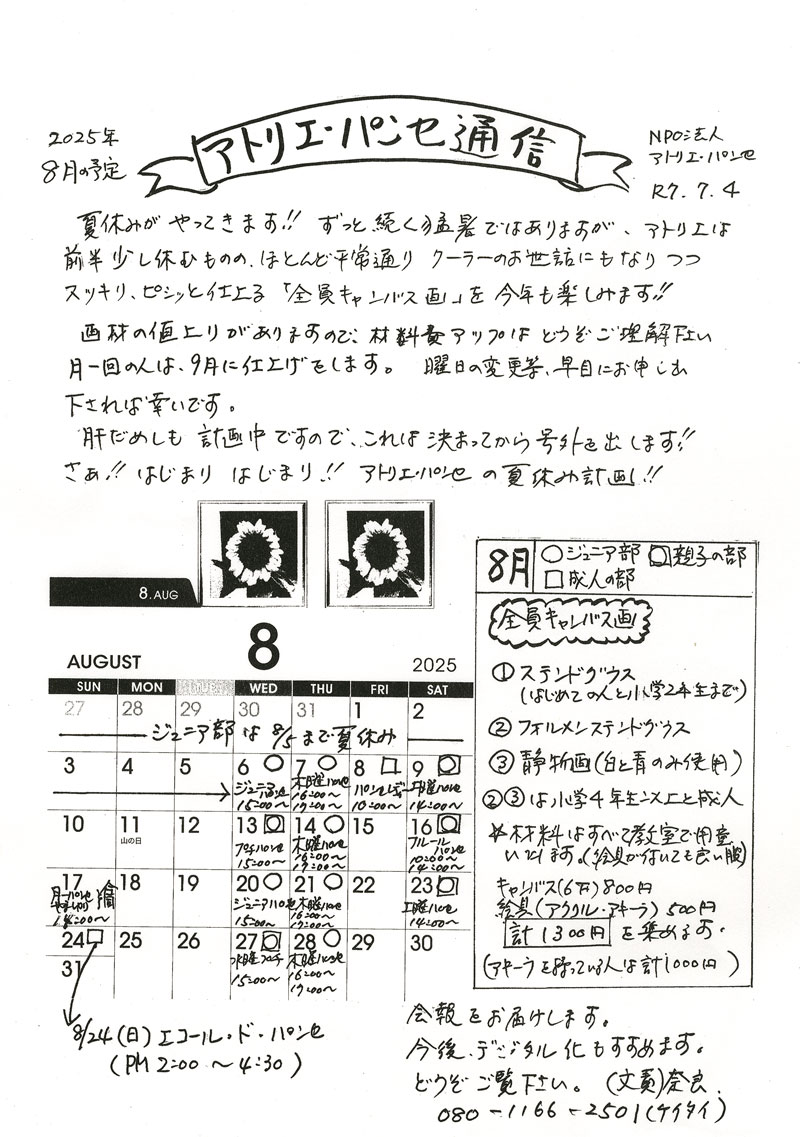 2025年
8月の予定
アトリエ・パンセ通信
NPO法人
アトリエ・パンセ
R7.7.4
夏休みが やってきます!! ずっと続く猛暑ではありますが、アトリエは
前半少し休むものの、ほとんど平常通り クーラーのお世話にもなりつつ
スッキリ、ピシッと仕上る「全員キャンバス画」を今年も楽しみます!!
画材の値上りがありますので、材料費アップは どうぞご理解下さい
月一回の人は、9月に仕上げをします。 曜日の変更等、早目にお申し出
下されば幸いです。
肝だめしも 計画中ですので、これは 決まってから号外を出します!!
さぁ!! はじまり はじまり!! アトリエ・パンセ の夏休み計画!!
8.AUG
AUGUST 8 2025
SUN MON WED THU FRI SAT
27 28 29 30 31 1 2
ジュニア部は 8/5まで夏休み
3 4 5 6 7 8 9
ジュニアパンセ
15:00〜
木曜パンセ
16:00〜
19:00〜
10:00〜
土曜パンセ
14:00〜
10 11 12 13 14 15 16
山の日
プチパンセ
15:00〜
木曜パンセ
16:00〜
19:00〜
フルールパンセ
10:00〜
14:00〜
17 18 19 20 21 22 23
14:00〜
ジュニアパンセ
15:00〜
木曜パンセ
16:00〜
19:00〜
土曜パンセ
14:00〜
24 25 26 27 28 29 30
水曜プチ
15:00〜
木曜パンセ
16:00〜
19:00〜
31
8/24(日) エコール・ド・パンセ
(PM 2:00 〜 4:30)
8月 ○ジュニア部 親子の部
□成人の部
全員キャンバス画
① ステンドグラス
(はじめての人と小学2年生まで)
② フォルメンステンドグラス
③ 静物画(白と青のみ使用)
②③は小学4年生以上と成人
*材料はすべて教室で用意
います。(絵具が付いても良い服)
キャンバス(6号)800円
絵具(アクリル・アキーラ) 500円
計1300円 を集めます。
(アキーラを持っている人は計1000円)
会報をお届けします。
今後、デジタル化もすすめます。
どうぞ ご覧下さい。 (文責)奈良
080-1166-2501(ケイタイ)